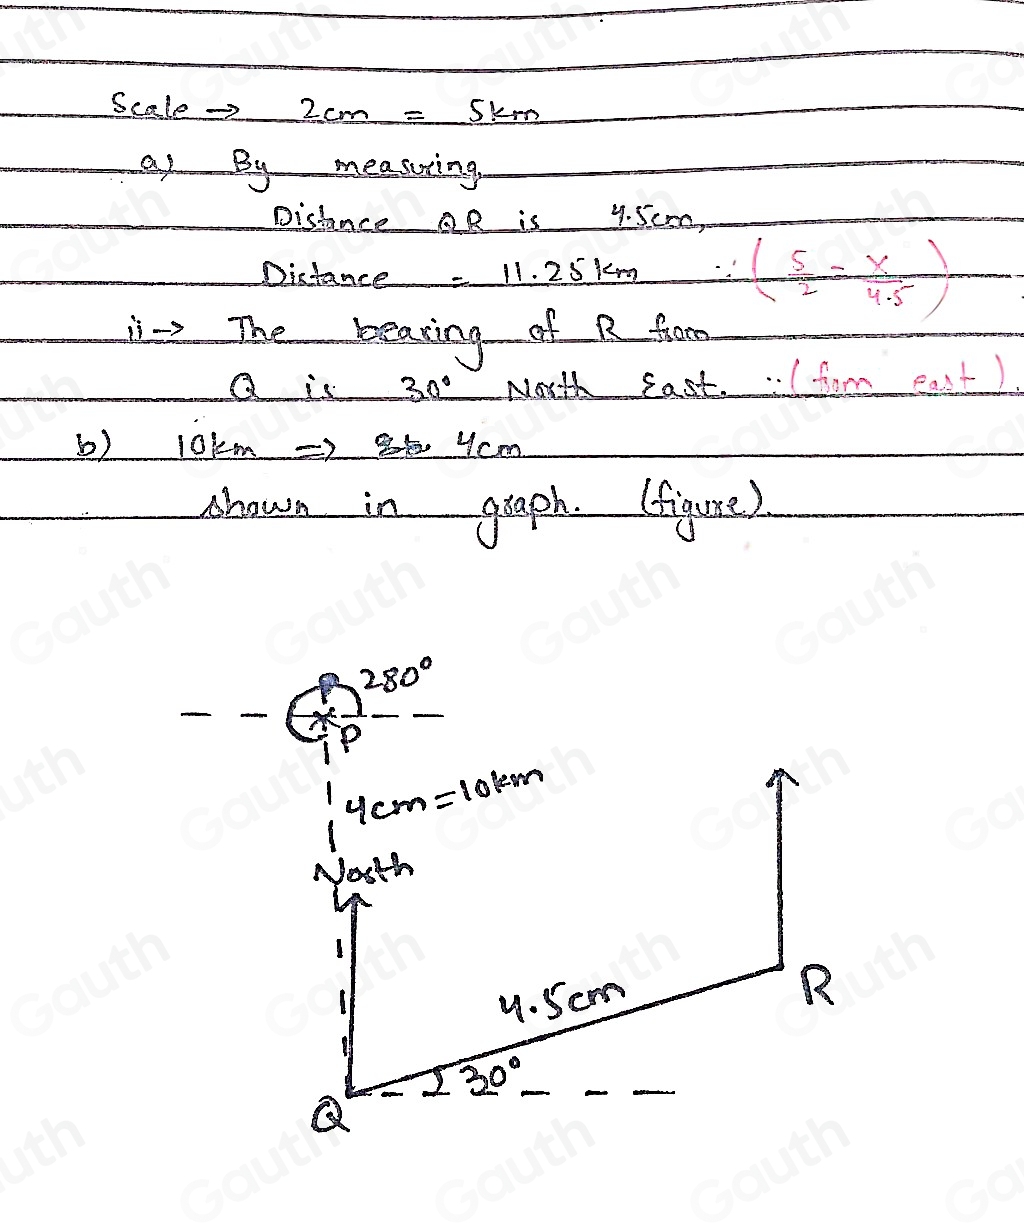 Scale → 2cm = 5km
a) By measuring,
Distance QR is 4.5cm,
Distance = 11.25km ∵ ( 5/2 = x/4.5 )
ii → The bearing of R from
Q is 30° North East. ∵ (from east).
b) 10km ⇒ 4cm
shown in graph. (figure).
280°
P
4cm = 10km
North
4.5cm
R
30°
Q